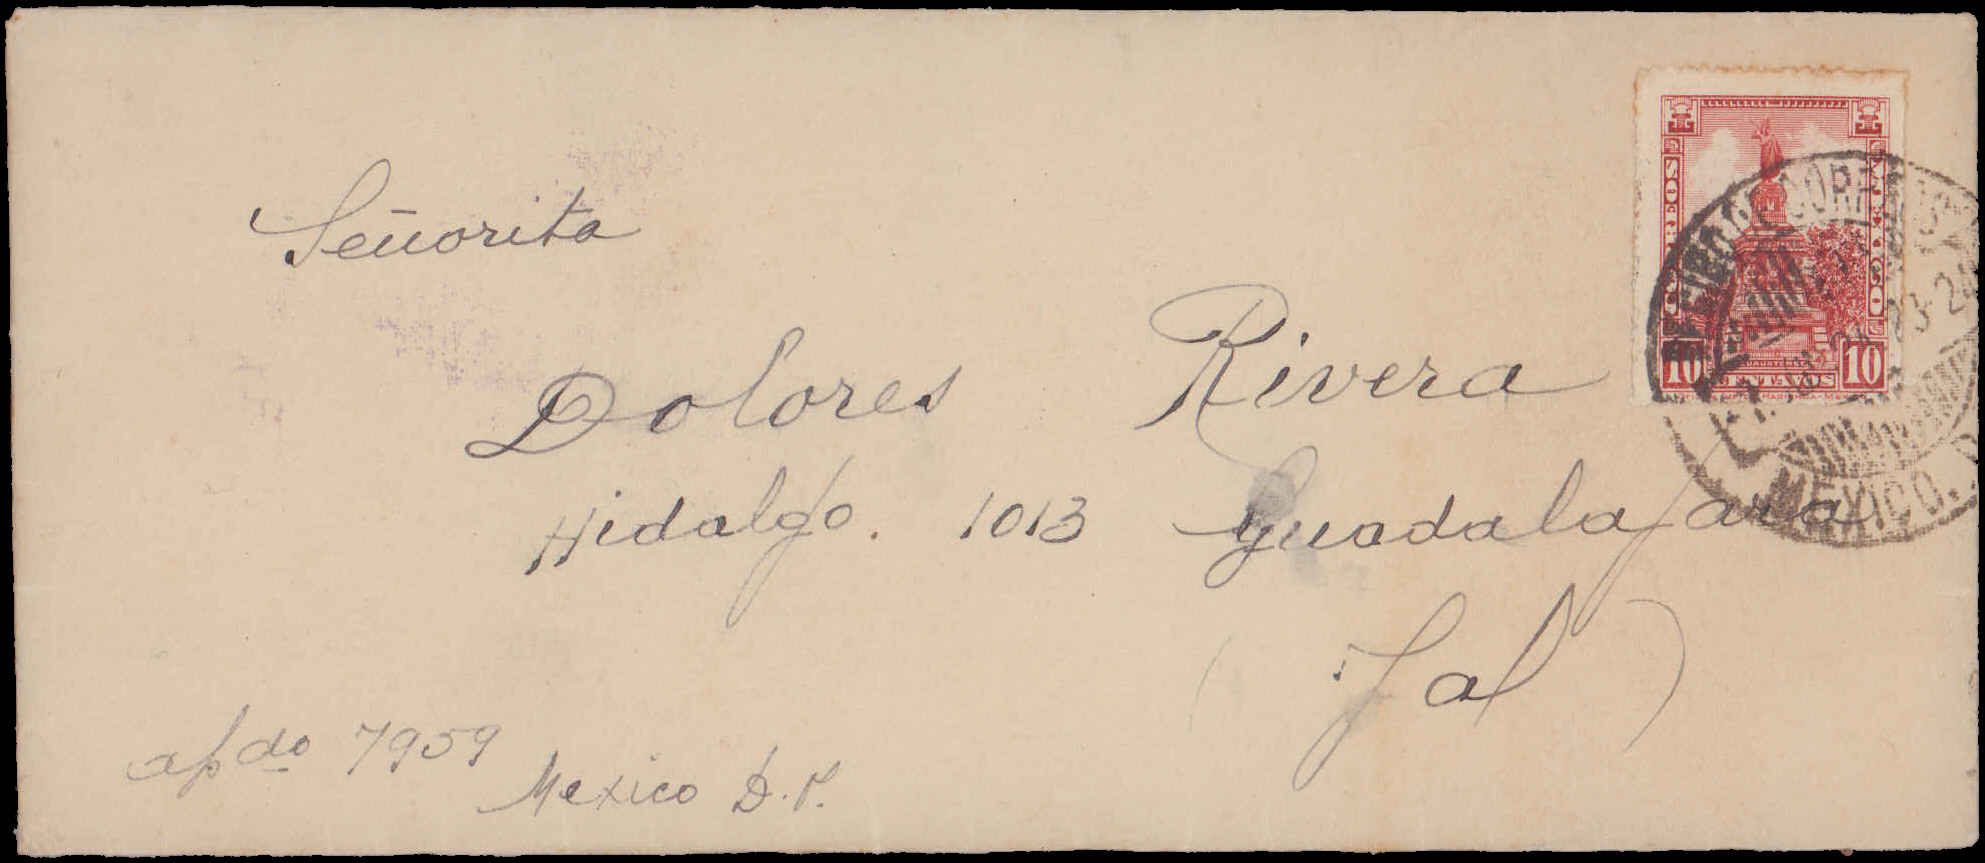 Señorita
Dolores Rivera
Hidalgo. 1013 Guadalajara
(Jal)
apdo 7959
Mexico D.F.
CORREOS
MEXICO
10 CENTAVOS 10
MEXICO. D